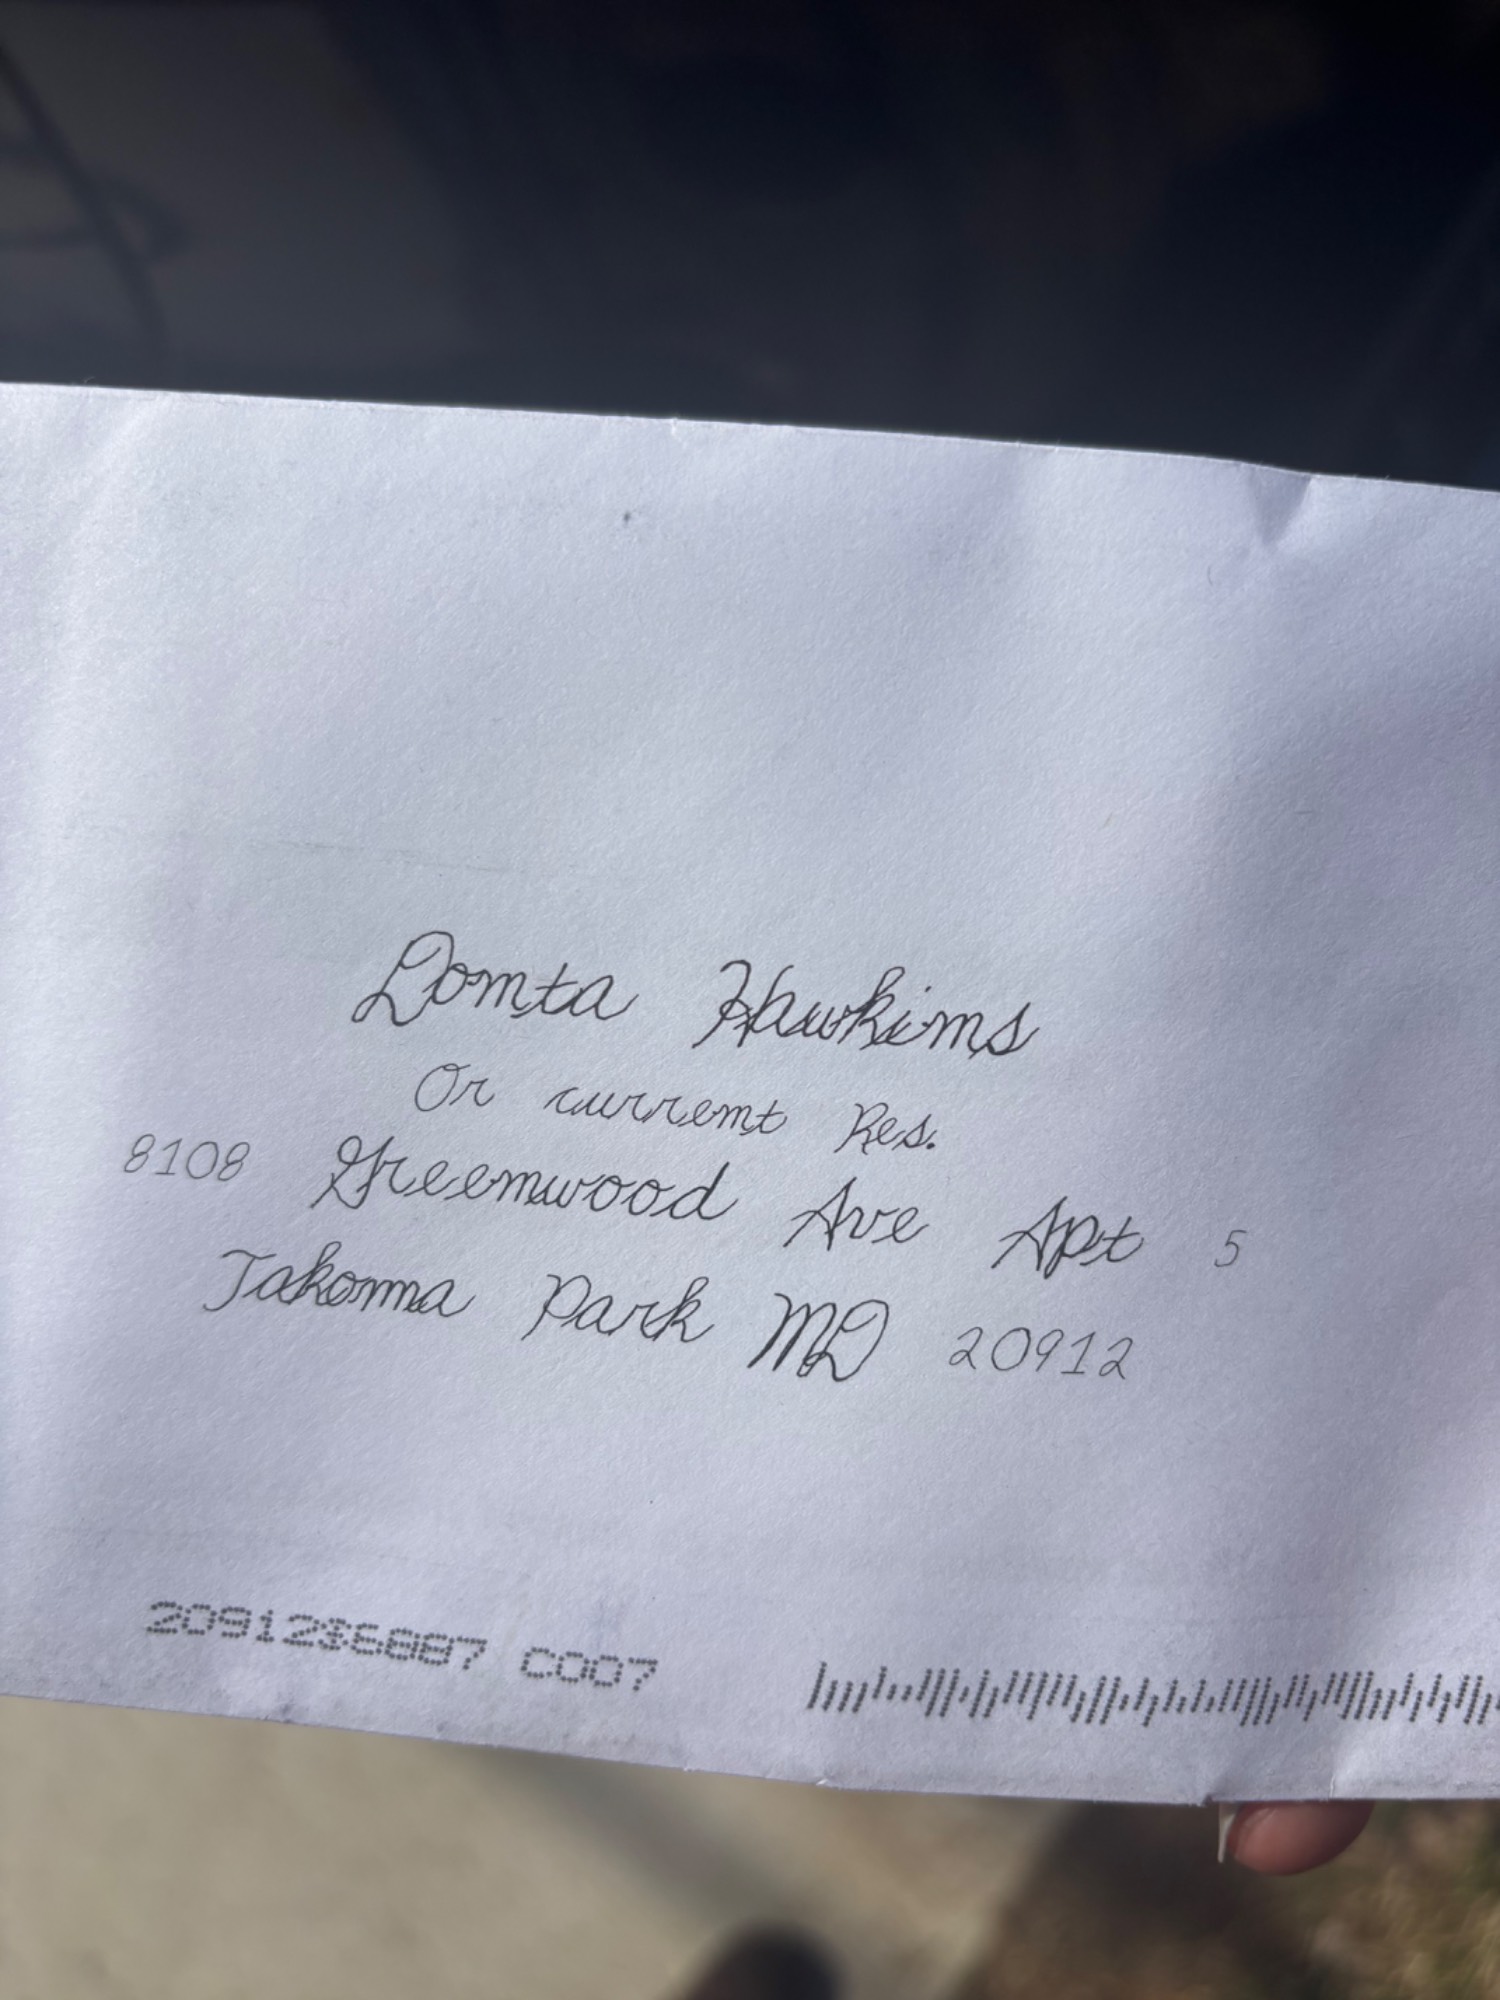 Domta Hawkims
Or curremt Res.
8108 Greemwood Ave Apt 5
Takoma Park MD 20912
2091236887 C007